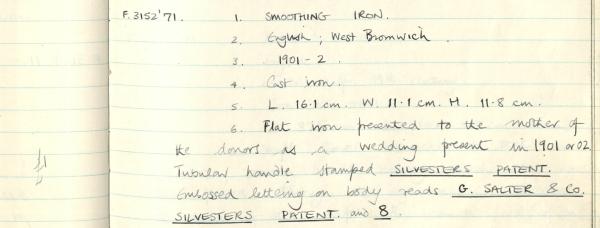 F.3152'71. 1. SMOOTHING IRON.
2. English; West Bromwich.
3. 1901-2.
4. Cast iron.
5. L. 16.1 cm. W. 11.1 cm. H. 11.8 cm.
6. Flat iron presented to the mother of
the donors as a wedding present in 1901 or 02.
Tubular handle stamped SILVESTERS PATENT.
Embossed lettering on body reads G. SALTER & Co.
SILVESTERS PATENT. and 8.